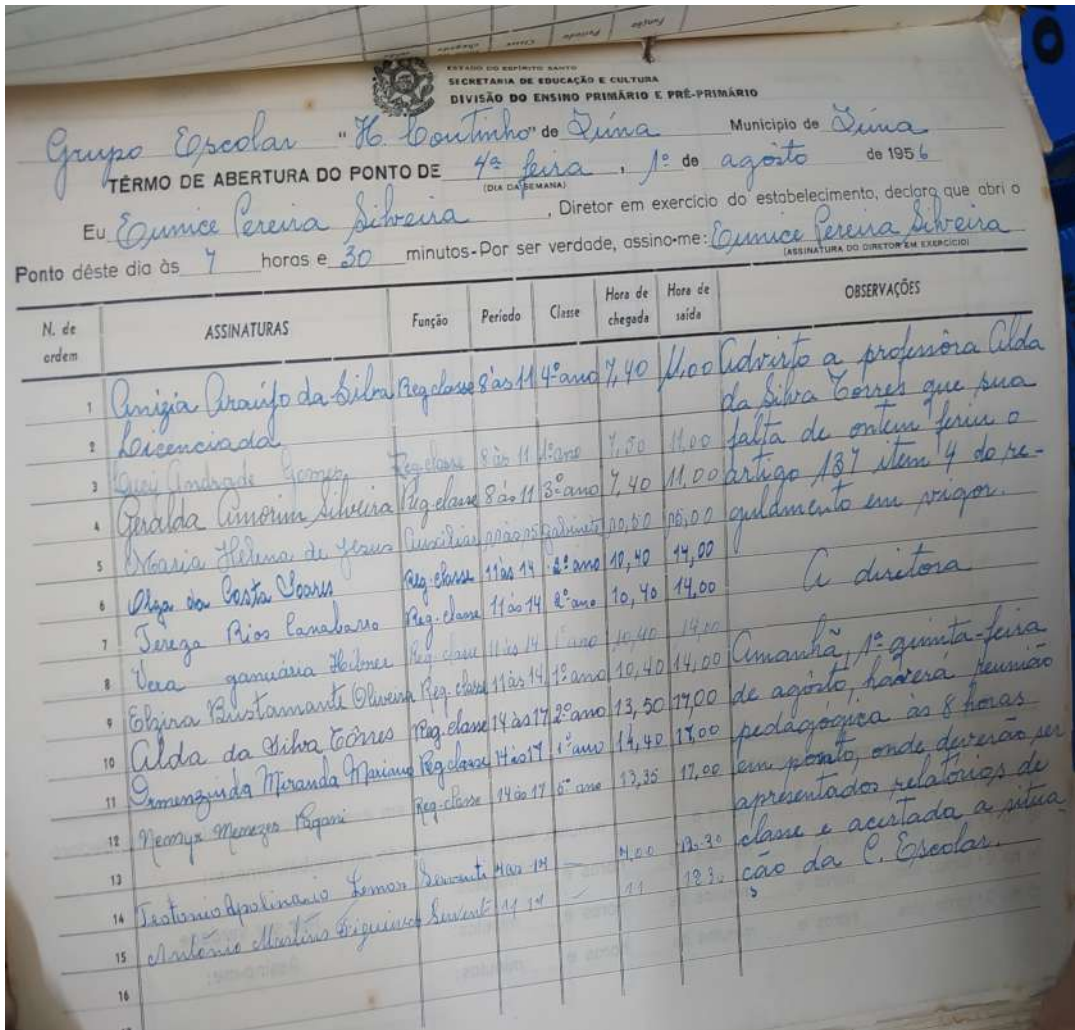 ESTADO DO ESPÍRITO SANTO
SECRETARIA DE EDUCAÇÃO E CULTURA
DIVISÃO DO ENSINO PRIMÁRIO E PRÉ-PRIMÁRIO
Grupo Escolar "H. Coutinho" de Iúna Municipio de Iúna
TÊRMO DE ABERTURA DO PONTO DE 4ª feira, 1º de agôsto de 1956
(DIA DA SEMANA)
Eu Eunice Pereira Silveira, Diretor em exercício do estabelecimento, declaro que abri o
Ponto dêste dia às 7 horas e 30 minutos-Por ser verdade, assino-me: Eunice Pereira Silveira
(ASSINATURA DO DIRETOR EM EXERCÍCIO)
N. de ordem ASSINATURAS Função Período Classe Hora de chegada Hora de saída OBSERVAÇÕES
1 Anizia Araújo da Silva Reg classe 8 às 11 4º ano 7,40 11,00 Advirto a professôra Alda
2 Licenciada da Silva Torres que sua
3 Andrade Gomes Reg-classe 8 às 11 1º ano 7,50 11,00 falta de ontem feriu o
4 Geralda Amorim Silveira Reg classe 8 às 11 3º ano 7,40 11,00 artigo 137 item 4 do re-
5 Maria Helena de Jesus Auxiliar gabinete 10,50 15,00 gulamento em vigor.
6 Olga da Costa Soares Reg-classe 11 às 14 2º ano 10,40 14,00 A diretora
7 Tereza Rios Canabarro Reg-classe 11 às 14 2º ano 10,40 14,00
8 Vera Reg. classe 11 às 14 1º ano 10,40 14,00 Amanhã, 1ª quinta-feira
9 Elzira Bustamante Oliveira Reg-classe 11 às 14 1º ano 10,40 14,00 de agôsto, haverá reunião
10 Alda da Silva Tôrres Reg. classe 14 às 17 2º ano 13,50 17,00 pedagógica às 8 horas
11 Ormenzinda Miranda Mariano Reg classe 14 às 17 1º ano 14,40 17,00 em ponto, onde deverão ser
12 Menezes Pagani Reg-classe 14 às 17 ano 13,35 17,00 apresentados relatórios de
13 classe e acertada a situa-
14 Teotonio Apolinario Lemos Servente 7,00 12.30 ção da C. Escolar.
15 Antônio Martins Servent 11 11
16